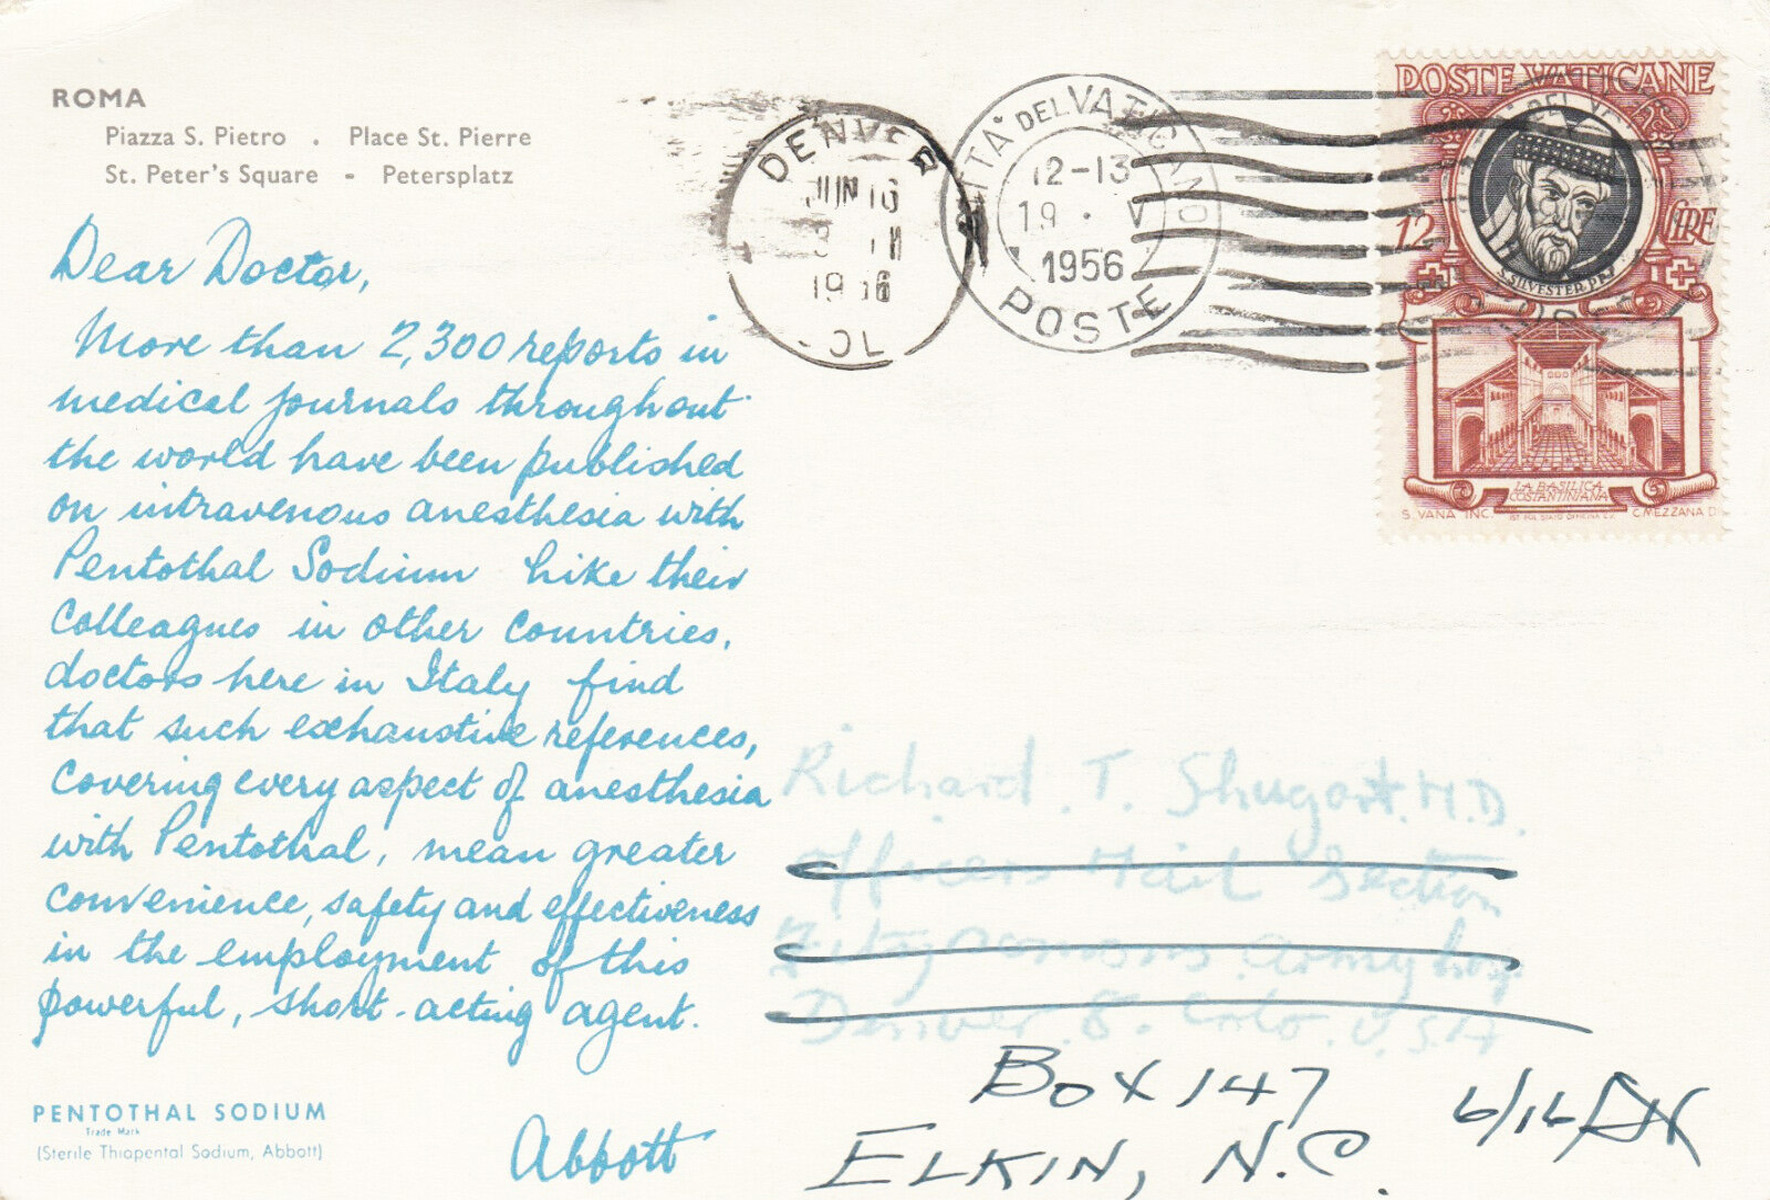 ROMA
Piazza S. Pietro . Place St. Pierre
St. Peter's Square - Petersplatz
Dear Doctor,
More than 2,300 reports in
medical journals throughout
the world have been published
on intravenous anesthesia with
Pentothal Sodium Like their
colleagues in other countries,
doctors here in Italy find
that such exhaustive references,
covering every aspect of anesthesia
with Pentothal, mean greater
convenience, safety and effectiveness
in the employment of this
powerful, short-acting agent.
Abbott
PENTOTHAL SODIUM
Trade Mark
(Sterile Thiopental Sodium, Abbott)
DENVER
JUN 16
1956
COL
CITTA' DEL VATICANO
12-13
19 . V
1956
POSTE
POSTE VATICANE
12 LIRE
S. SILVESTER. P.P.
LA BASILICA
COSTANTINIANA
S. VANA INC. IST. POL. STATO OFFICINA C.V. C. MEZZANA D.
Richard. T. Shugart. M.D.
Officers Mail Section
Fitzsimons. Army hosp
Denver. 8. Colo. U.S.A
Box 147
6/16
ELKIN, N.C.